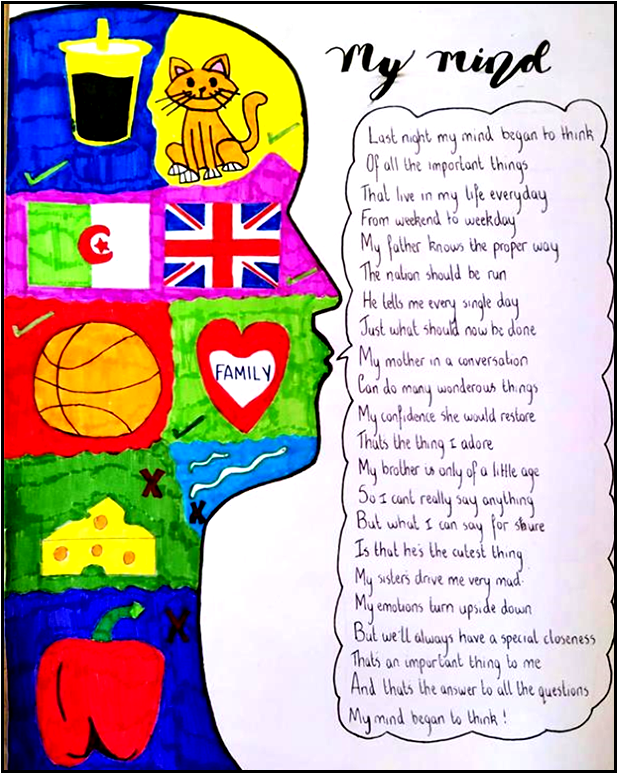 My mind
Last night my mind began to think
Of all the important things
That live in my life everyday
From weekend to weekday
My father knows the proper way
The nation should be run
He tells me every single day
Just what should now be done
My mother in a conversation
Can do many wonderous things
My confidence she would restore
Thats the thing I adore
My brother is only of a little age
So I cant really say anything
But what I can say for shure
Is that he's the cutest thing
My sisters drive me very mad
My emotions turn upside down
But we'll always have a special closeness
Thats an important thing to me
And thats the answer to all the questions
My mind began to think!
FAMILY